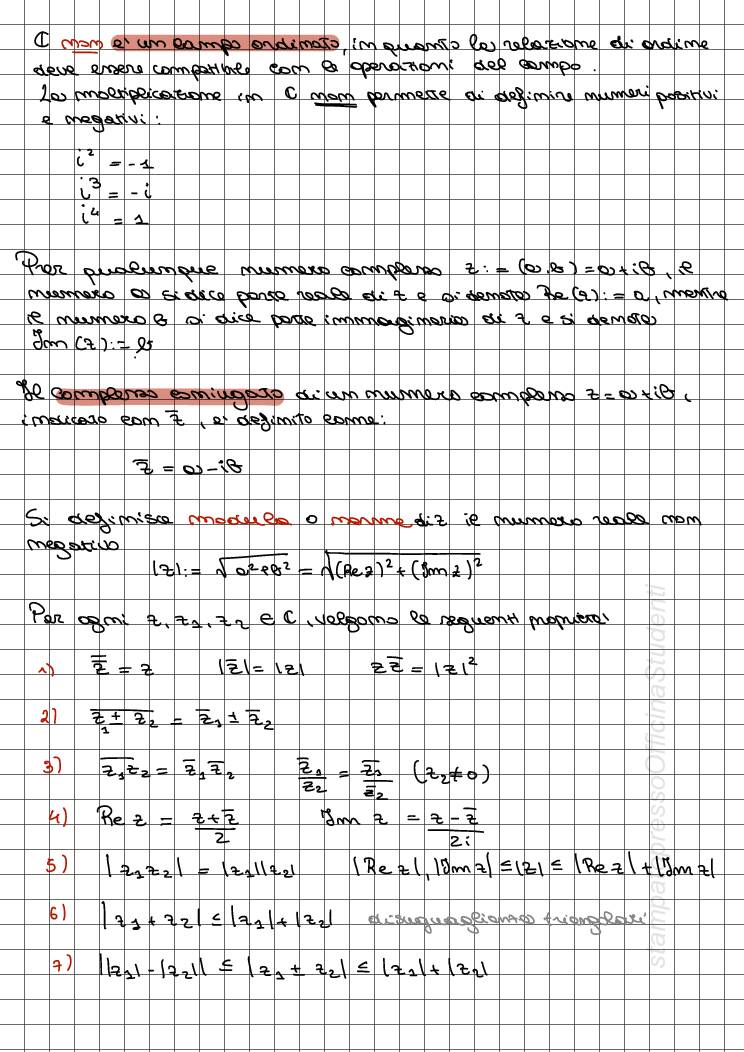 ℂ non è un campo ordinato, in quanto la relazione di ordine
deve essere compatibile con le operazioni del campo.
La moltiplicazione in ℂ non permette di definire numeri positivi
e negativi:
i² = -1
i³ = -i
i⁴ = 1
Per qualunque numero complesso z := (a,b) = a+ib, il
numero a si dice parte reale di z e si denota Re(z) := a, mentre
il numero b si dice parte immaginaria di z e si denota
Im(z) := b
Il complesso coniugato di un numero complesso z = a+ib,
indicato con z̅, è definito come:
z̅ = a-ib
Si definisce modulo o norma di z il numero reale non
negativo
|z| := √(a²+b²) = √((Re z)² + (Im z)²)
Per ogni z, z₁, z₂ ∈ ℂ, valgono le seguenti proprietà
1) z̿ = z |z̅| = |z| z z̅ = |z|²
2) \overline{z₁ ± z₂} = z̅₁ ± z̅₂
3) \overline{z₁z₂} = z̅₁ z̅₂ z̅₁/z₂ = z̅₁/z̅₂ (z₂≠0)
4) Re z = (z+z̅)/2 Im z = (z-z̅)/2i
5) |z₁z₂| = |z₁||z₂| |Re z|, |Im z| ≤ |z| ≤ |Re z| + |Im z|
6) |z₁ + z₂| ≤ |z₁| + |z₂| disuguaglianza triangolari
7) ||z₁| - |z₂|| ≤ |z₁ ± z₂| ≤ |z₁| + |z₂|
stampa pressoOfficinaStudenti